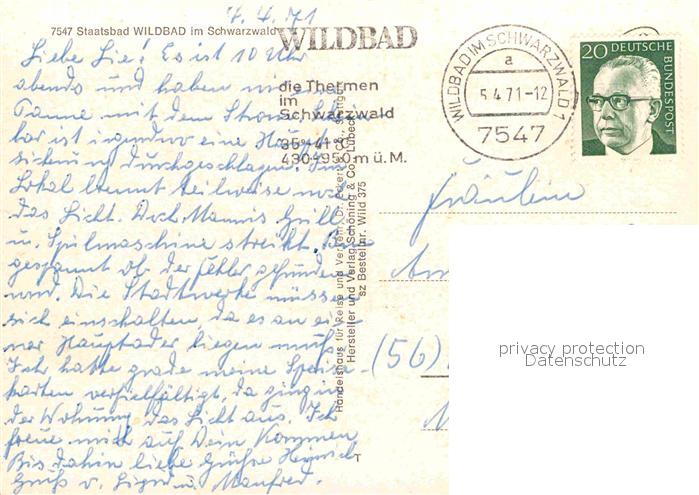 4.4.71
7547 Staatsbad WILDBAD im Schwarzwald
WILDBAD
die Thermen
im
Schwarzwald
35°-41°C
430-950m ü.M.
WILDBAD IM SCHWARZWALD 1
a
5.4.71-12
7547
20 DEUTSCHE
BUNDESPOST
Liebe Sie! Es ist 10 Uhr
abends und haben wir
Panne mit dem Strom.
bar ist irgendwo eine Haupt-
sicherung durchgeschlagen. Im
Lokal brennt teilweise noch
das Licht. Doch Mannis Grill
u. Spülmaschine streikt. Bin
gespannt ob der Fehler gefunden
wird. Die Stadtwerke müssen
sich einschalten, da es an ei-
ner Hauptader liegen muß.
Ich hatte grade meine Speise-
karten vervielfältigt, da ging in
der Wohnung das Licht aus. Ich
freue mich auf Dein Kommen
Bis dahin liebe Grüße
Gruß v. Sigrid u. Manfred.
Handelshaus für Reise und Verkehr
Hersteller und Verlag Schöning & Co., Lübeck
sz Bestellnr. Wild 375
Fräulein
(56)
T
privacy protection
Datenschutz